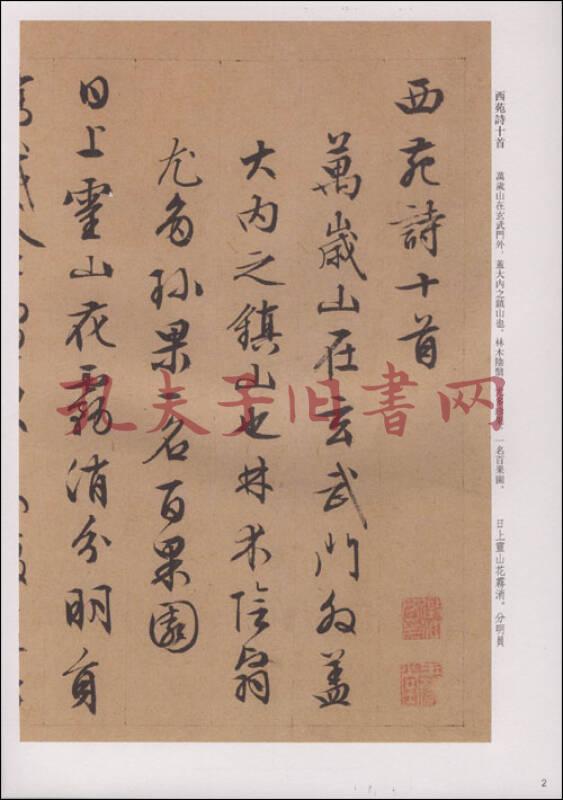 西苑詩十首　萬歲山在玄武門外，蓋大内之鎮山也。林木陰翳，尤多珍果，一名百果園。　日上靈山花霧消。分明員
西苑詩十首
萬歲山在玄武門外蓋
大内之鎮山也林木陰翳
尤多珍果一名百果園
日上靈山花霧消分明員
孔夫子旧书网
2